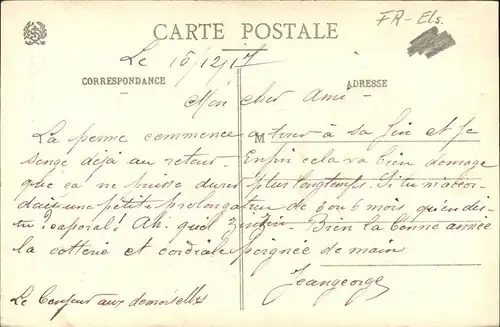 FR-Els.
CARTE POSTALE
Le 15/12/17
CORRESPONDANCE
ADRESSE
Mon cher Ami -
La perme commence à tirer à sa fin et je
M
songe déjà au retour. Enfin cela va bien domage
que ça ne puisse durer plus longtemps. Si tu m'accor-
dais une petite prolongation de 5 ou 6 mois qu'en dis
tu caporal! Ah. quel Zinzin. Bien la bonne année
la cotterie et cordiale poignée de main
Jeangeorge
Le aux demoiselles